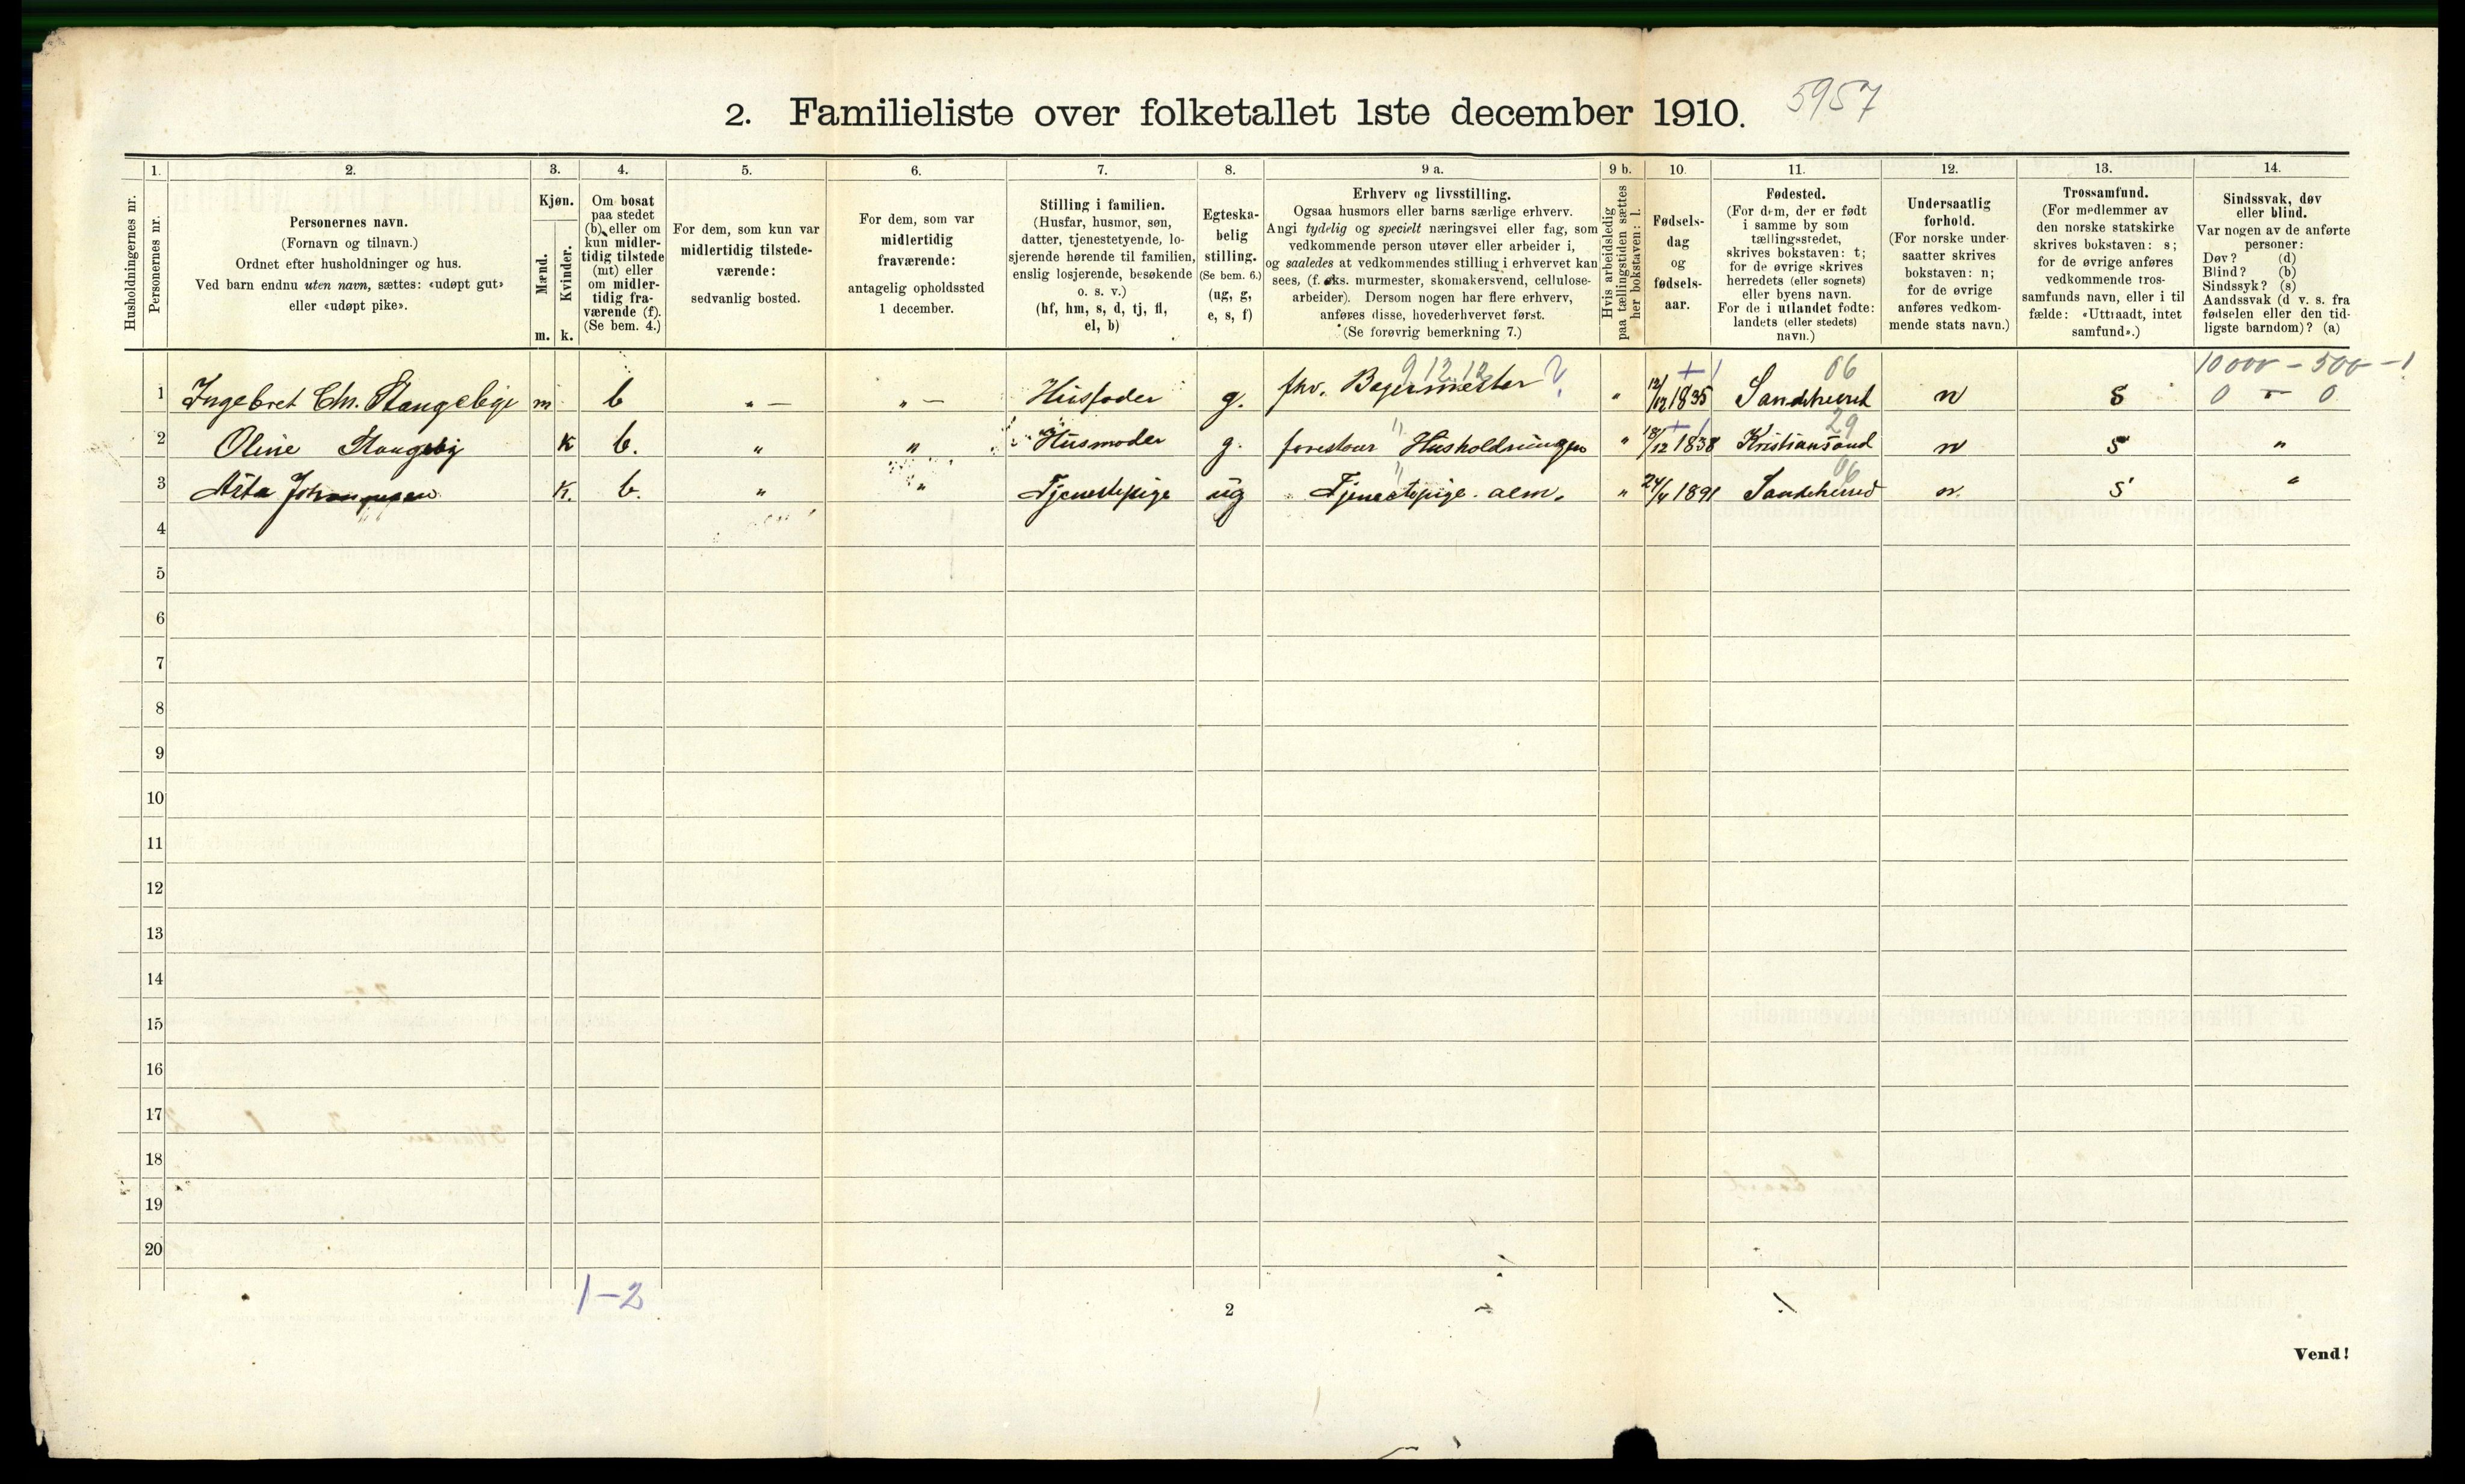 2. Familieliste over folketallet 1ste december 1910. 5957
Husholdningernes nr.
1.
Personernes nr.
2.
Personernes navn.
(Fornavn og tilnavn.)
Ordnet efter husholdninger og hus.
Ved barn endnu uten navn, sættes: «udøpt gut»
eller «udøpt pike».
3.
Kjøn.
Mænd.
Kvinder.
m. k.
4.
Om bosat
paa stedet
(b) eller om
kun midler-
tidig tilstede
(mt) eller
om midler-
tidig fra-
værende (f).
(Se bem. 4.)
5.
For dem, som kun var
midlertidig tilstede-
værende:
sedvanlig bosted.
6.
For dem, som var
midlertidig
fraværende:
antagelig opholdssted
1 december.
7.
Stilling i familien.
(Husfar, husmor, søn,
datter, tjenestetyende, lo-
sjerende hørende til familien,
enslig losjerende, besøkende
o. s. v.)
(hf, hm, s, d, tj, fl,
el, b)
8.
Egteska-
belig
stilling.
(Se bem. 6.)
(ug, g,
e, s, f)
9 a.
Erhverv og livsstilling.
Ogsaa husmors eller barns særlige erhverv.
Angi tydelig og specielt næringsvei eller fag, som
vedkommende person utøver eller arbeider i,
og saaledes at vedkommendes stilling i erhvervet kan
sees, (f. eks. murmester, skomakersvend, cellulose-
arbeider). Dersom nogen har flere erhverv,
anføres disse, hovederhvervet først.
(Se forøvrig bemerkning 7.)
9 b.
Hvis arbeidsledig
paa tællingstiden sættes
her bokstaven: l.
10.
Fødsels-
dag
og
fødsels-
aar.
11.
Fødested.
(For dem, der er født
i samme by som
tællingsstedet,
skrives bokstaven: t;
for de øvrige skrives
herredets (eller sognets)
eller byens navn.
For de i utlandet fødte:
landets (eller stedets)
navn.)
12.
Undersaatlig
forhold.
(For norske under-
saatter skrives
bokstaven: n;
for de øvrige
anføres vedkom-
mende stats navn.)
13.
Trossamfund.
(For medlemmer av
den norske statskirke
skrives bokstaven: s;
for de øvrige anføres
vedkommende tros-
samfunds navn, eller i til
fælde: «Uttraadt, intet
samfund».)
14.
Sindssvak, døv
eller blind.
Var nogen av de anførte
personer:
Døv? (d)
Blind? (b)
Sindssyk? (s)
Aandssvak (d v. s. fra
fødselen eller den tid-
ligste barndom)? (a)
9 12 12 + 1 06 10000 - 500 - 1
1 Ingebret Chr. Stangebye m b " — " — Husfader g. fhv. Bagermester " 12/12 1835 Sandeherred n S 0 — 0
" + 1 29
2 Oline Stangeby K b. " " Husmoder g. forestaar Husholdningen " 18/12 1838 Kristiansand n S "
" 06
3 Asta Johannesen K. b. " " Tjenestepige ug Tjenestepige alm. " 24/4 1891 Sandeherred n. S "
4
5
6
7
8
9
10
11
12
13
14
15
16
17
18
19
20
1-2
2
Vend!